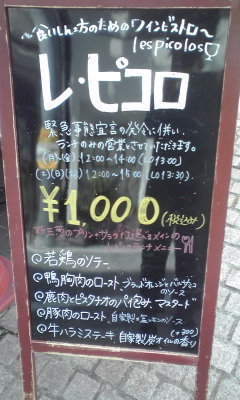 〜食いしん坊のためのワインビストロ〜
les picolos
レ・ピコロ
緊急事態宣言の発令に伴い、
ランチのみの営業とさせていただきます。
(月)(金) 12:00~14:00 (LO 13:00)
(土)(日)(祝) 12:00~15:00 (LO 13:30)
¥1,000 (税込み)
メインの
ランチメニュー
@若鶏のソテー
@鴨胸肉のロースト ブラッドオレンジとバルサミコ
のソース
@鹿肉とピスタチオのパイ包み、マスタード
@豚肉のロースト 自家製レモンのソース
@牛ハラミステーキ (+300)
自家製炭オイルの香り